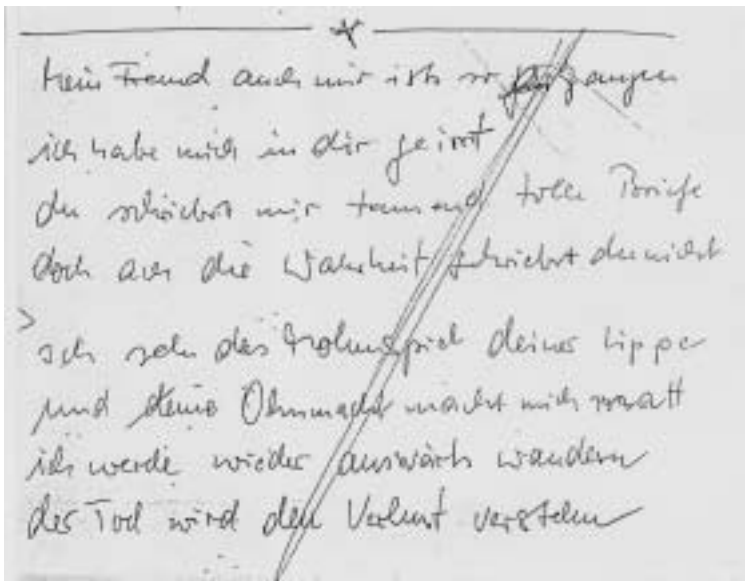 mein Freund auch mir ists so gegangen
ich habe mich in dir geirrt
du schriebst mir tausend tolle Briefe
doch aus die Wahrheit schriebst du nicht
ich seh das deiner Lippe
und deine Ohnmacht macht mich matt
ich werde wieder auswärts wandern
der Tod wird den Verlust verstehn